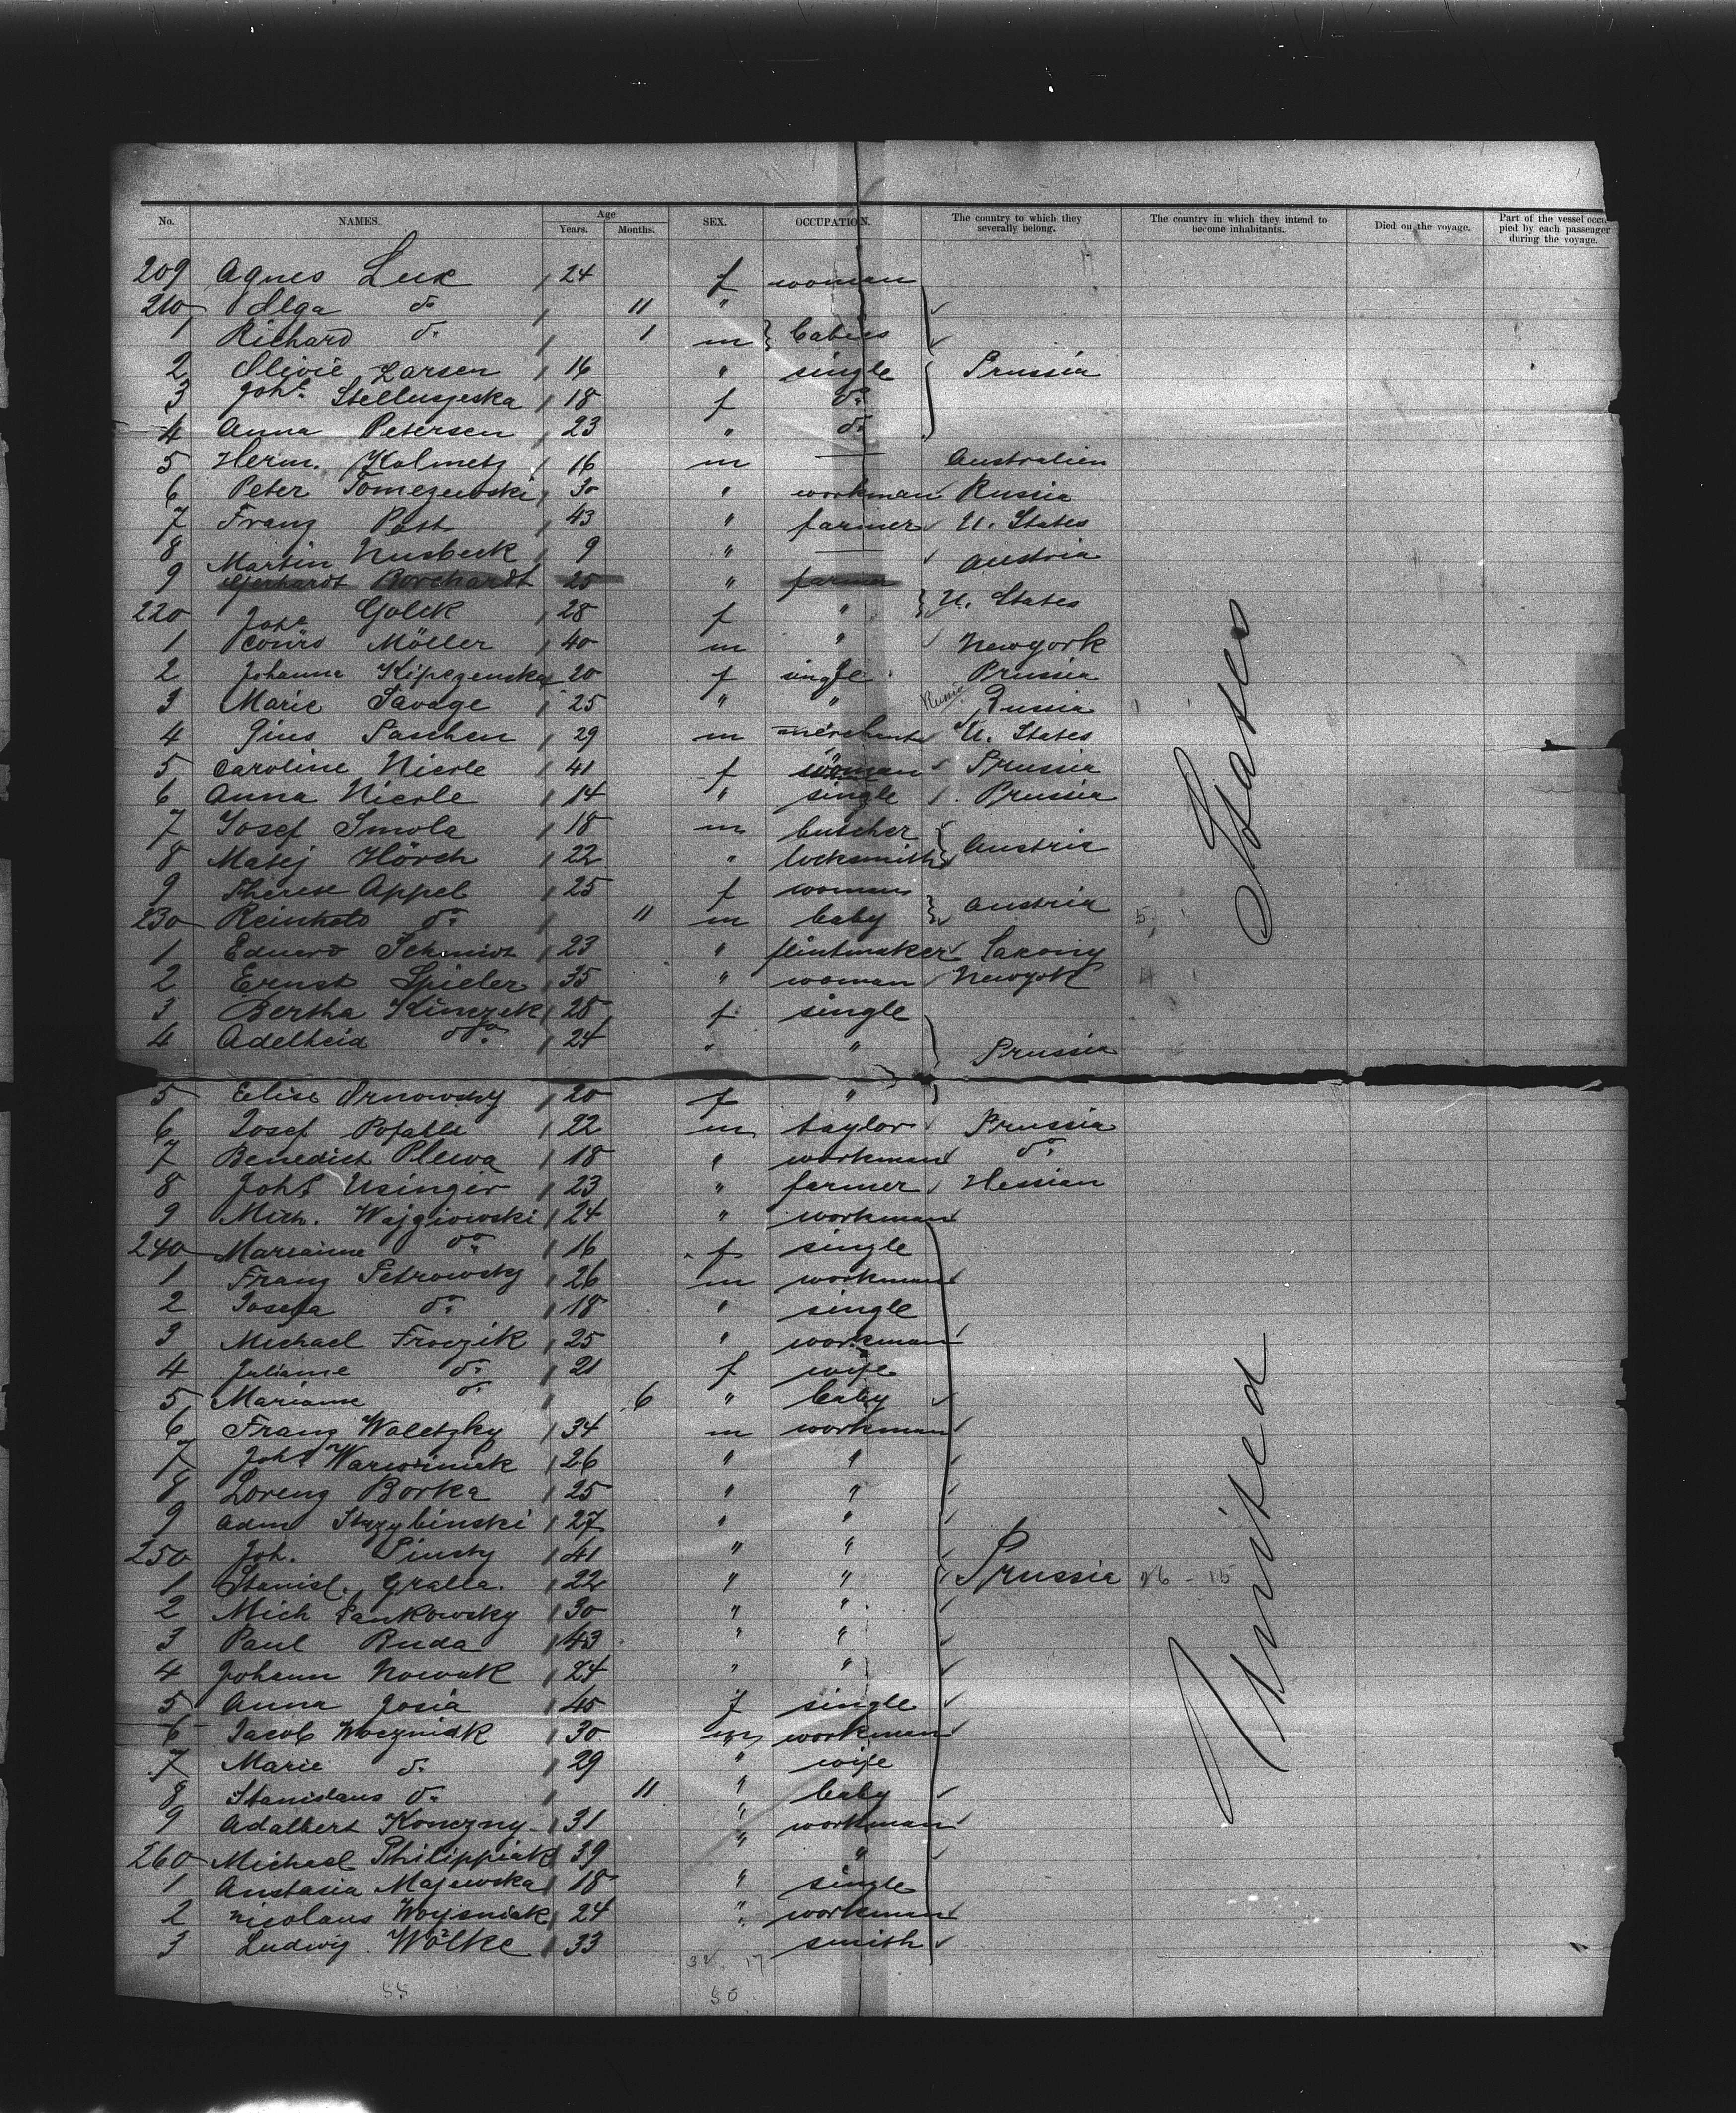 No. NAMES. Age Years. Months. SEX. OCCUPATION. The country to which they severally belong. The country in which they intend to become inhabitants. Died on the voyage. Part of the vessel occupied by each passenger during the voyage.
209 Agnes Lux 24 f woman
210 Olga do 11 "
1 Richard do 1 m babies
2 Olivie Larsen 16 " single Prussia
3 Johe Stellusjeska 18 f do
4 Anna Petersen 23 " do
5 Herm. Kolmetz 16 m — Australien
6 Peter Tomezewski 30 " workman Russia
7 Franz Patt 43 " farmer U. States
8 Martin Nusbeck 9 " — Austria
9 Gerhardt Borchardt 25 " farmer
220 Johe Golek 28 f " U. States
1 Conrd Möller 40 m " Newyork
2 Johanna Kipezenska 20 f single Prussia
3 Marie Savage 25 " " Russia Russia
4 Jins Paschen 29 m merchant U. States
5 Caroline Nierle 41 f woman Prussia
6 Anna Nierle 14 " single Prussia
7 Josef Smola 18 m butcher
8 Matej Hörch 22 " locksmith Austria
9 Therese Appel 25 f woman
230 Reinhold do 11 m baby Austria
1 Eduard Schmidt 23 " flintmaker Saxony
2 Ernst Spieler 35 " woman Newyork
3 Bertha Kinczek 28 f single
4 Adelheid do 24 " " Prussia
5 Elise Ornowsky 20 f "
6 Josef Pofalla 22 m taylor Prussia
7 Benedict Plewa 18 " workman do
8 Johs Usinger 23 " farmer Hessian
9 Mich. Wajgiowski 24 " workman
240 Marianne do 16 f single
1 Franz Petrowsky 26 m workman
2 Josefa do 18 " single
3 Michael Froczik 25 " workman
4 Julianne do 21 f wife
5 Marianne do 6 " baby
6 Franz Waletzky 34 m workman
7 Johs Warwiniak 26 " "
8 Lorenz Borka 25 " "
9 Adm Skrzybinski 27 " "
250 Joh. Pinsky 41 " "
1 Stanisl. Gralla. 22 " " Prussia
2 Mich Pankowsky 30 " "
3 Paul Buda 43 " "
4 Johann Nowak 24 " "
5 Anna Josia 40 f single
6 Jacob Woczniak 30 m workman
7 Marie do 29 " wife
8 Stanislaus do 11 " baby
9 Adalbert Konczny 31 " workman
260 Michael Philippiak 39 " "
1 Anstasia Majewska 18 " single
2 Nicolaus Woysniak 24 " workman
3 Ludwig Wölke 33 smith
United States
55 50